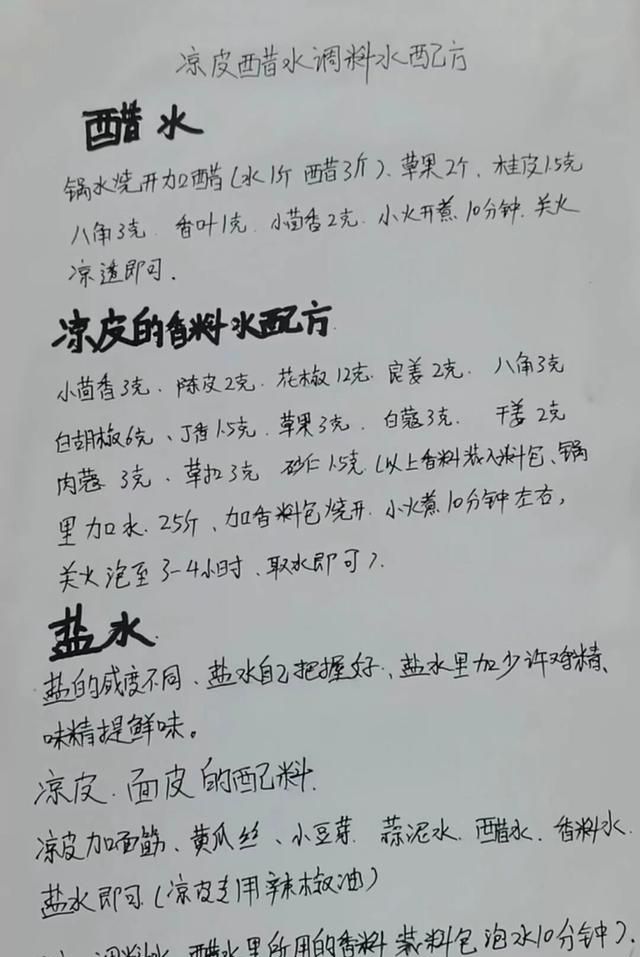 凉皮醋水调料水配方
醋水
锅水烧开加醋(水1斤 醋3斤)、草果2个、桂皮1.5克
八角3克、香叶1克、小茴香2克、小火开煮10分钟、关火
凉透即可.
凉皮的香料水配方
小茴香3克、陈皮2克、花椒12克、良姜2克、八角3克
白胡椒6克、丁香1.5克、草果3克、白蔻3克、干姜2克
肉蔻3克、草扣3克 砂仁1.5克(以上香料装入料包、锅
里加水25斤、加香料包烧开、小火煮10分钟左右,
关火泡至3-4小时、取水即可).
盐水
盐的咸度不同、盐水自己把握好、盐水里加少许鸡精、
味精提鲜味。
凉皮、面皮的配料
凉皮加面筋、黄瓜丝、小豆芽 蒜泥水、醋水、香料水、
盐水即可(凉皮专用辣椒油)
调料水 醋水里所用的香料 装料包泡水10分钟).